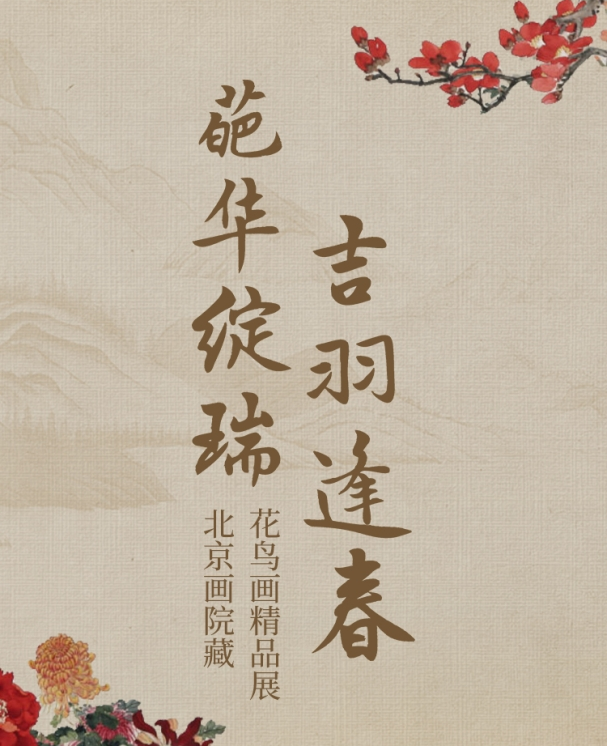 吉羽逢春
葩华绽瑞
花鸟画精品展
北京画院藏